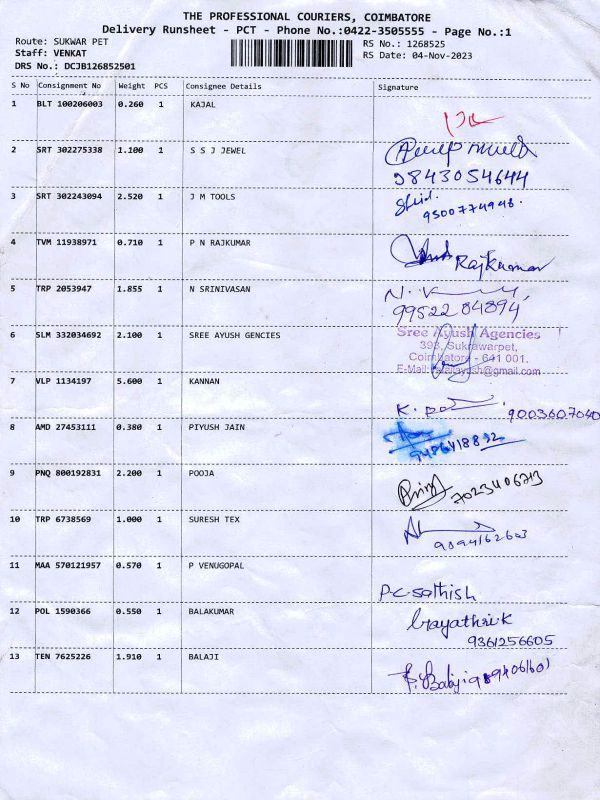 THE PROFESSIONAL COURIERS, COIMBATORE
Delivery Runsheet - PCT - Phone No.:0422-3505555 - Page No.:1
Route: SUKWAR PET
Staff: VENKAT
DRS No.: DCJB126852501
RS No.: 1268525
RS Date: 04-Nov-2023
S No Consignment No Weight PCS Consignee Details Signature
1 BLT 100206003 0.260 1 KAJAL
2 SRT 302275338 1.100 1 S S J JEWEL
9843054644
3 SRT 302243094 2.520 1 J M TOOLS
9500774948.
4 TVM 11938971 0.710 1 P N RAJKUMAR
Rajkumar
5 TRP 2053947 1.855 1 N SRINIVASAN
99522 84894
6 SLM 332034692 2.100 1 SREE AYUSH GENCIES
Sree Ayush Agencies
393, Sukrawarpet,
Coimbatore - 641 001.
E-Mail: @gmail.com
7 VLP 1134197 5.600 1 KANNAN
9003607040
8 AMD 27453111 0.380 1 PIYUSH JAIN
9486418832
9 PNQ 800192831 2.200 1 POOJA
7023406713
10 TRP 6738569 1.000 1 SURESH TEX
9894162603
11 MAA 570121957 0.570 1 P VENUGOPAL
P.C sathish
12 POL 1590366 0.550 1 BALAKUMAR
Gayathri K
9361256605
13 TEN 7625226 1.910 1 BALAJI
P. Balaji 9894061601